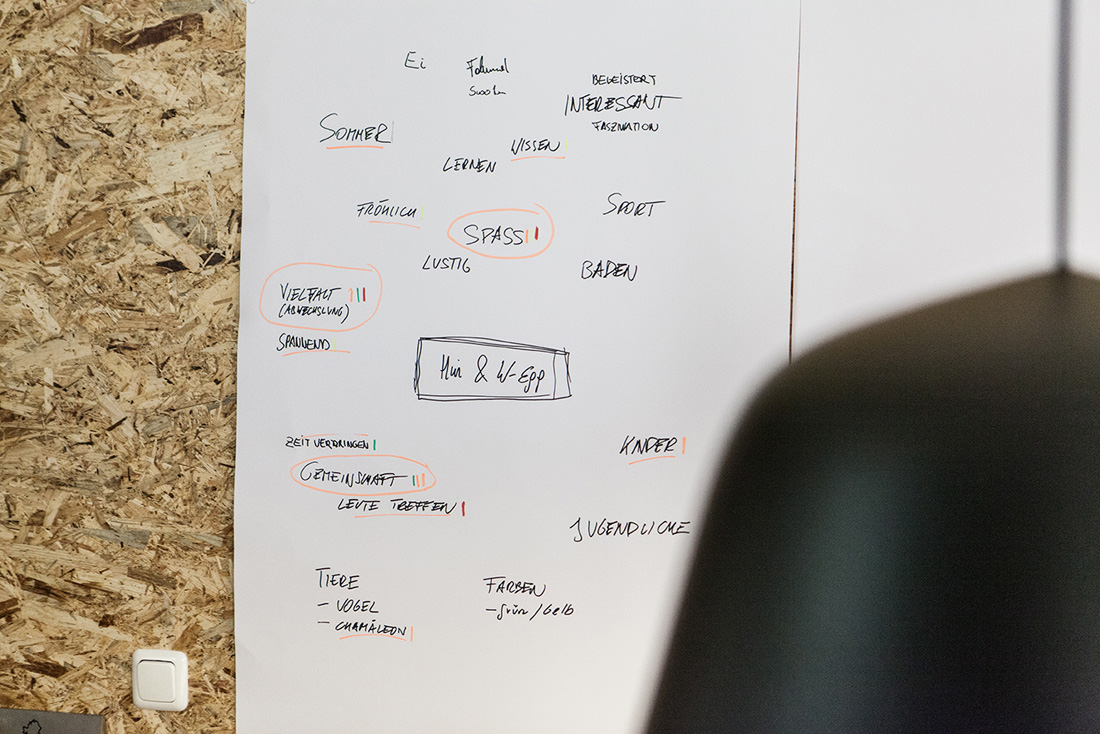 Ei
BEGEISTERT
INTERESSANT
FASZINATION
SOMMER
WISSEN
LERNEN
FRÖHLICH
SPORT
SPASS
LUSTIG
BADEN
VIELFALT
(ABWECHSLUNG)
SPANNEND
& W-Epp
ZEIT VERBRINGEN
KINDER
GEMEINSCHAFT
LEUTE TREFFEN
JUGENDLICHE
TIERE
- VOGEL
- CHAMÄLEON
FARBEN
- grün / Gelb